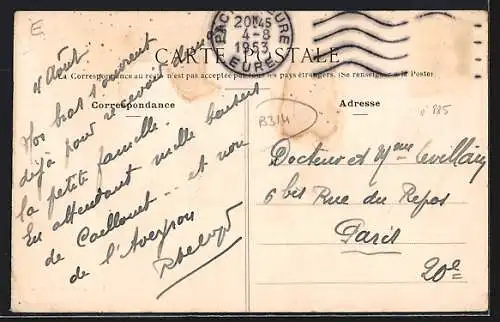 E
PACY S EURE
20H45
4-8
1953
EURE
CARTE POSTALE
La Correspondance au recto n'est pas acceptée par tous les pays étrangers. (Se renseigner à la Poste)
Correspondance
4 Août
Nos bras s'ouvrent
déjà pour recevoir
la petite famille.
En attendant mille baisers
de Caillouet... et non
de l'Aveyron
Adresse
B314
n° 885
Docteur et Mme Levillain
6 bis Rue du Repos
Paris
20e